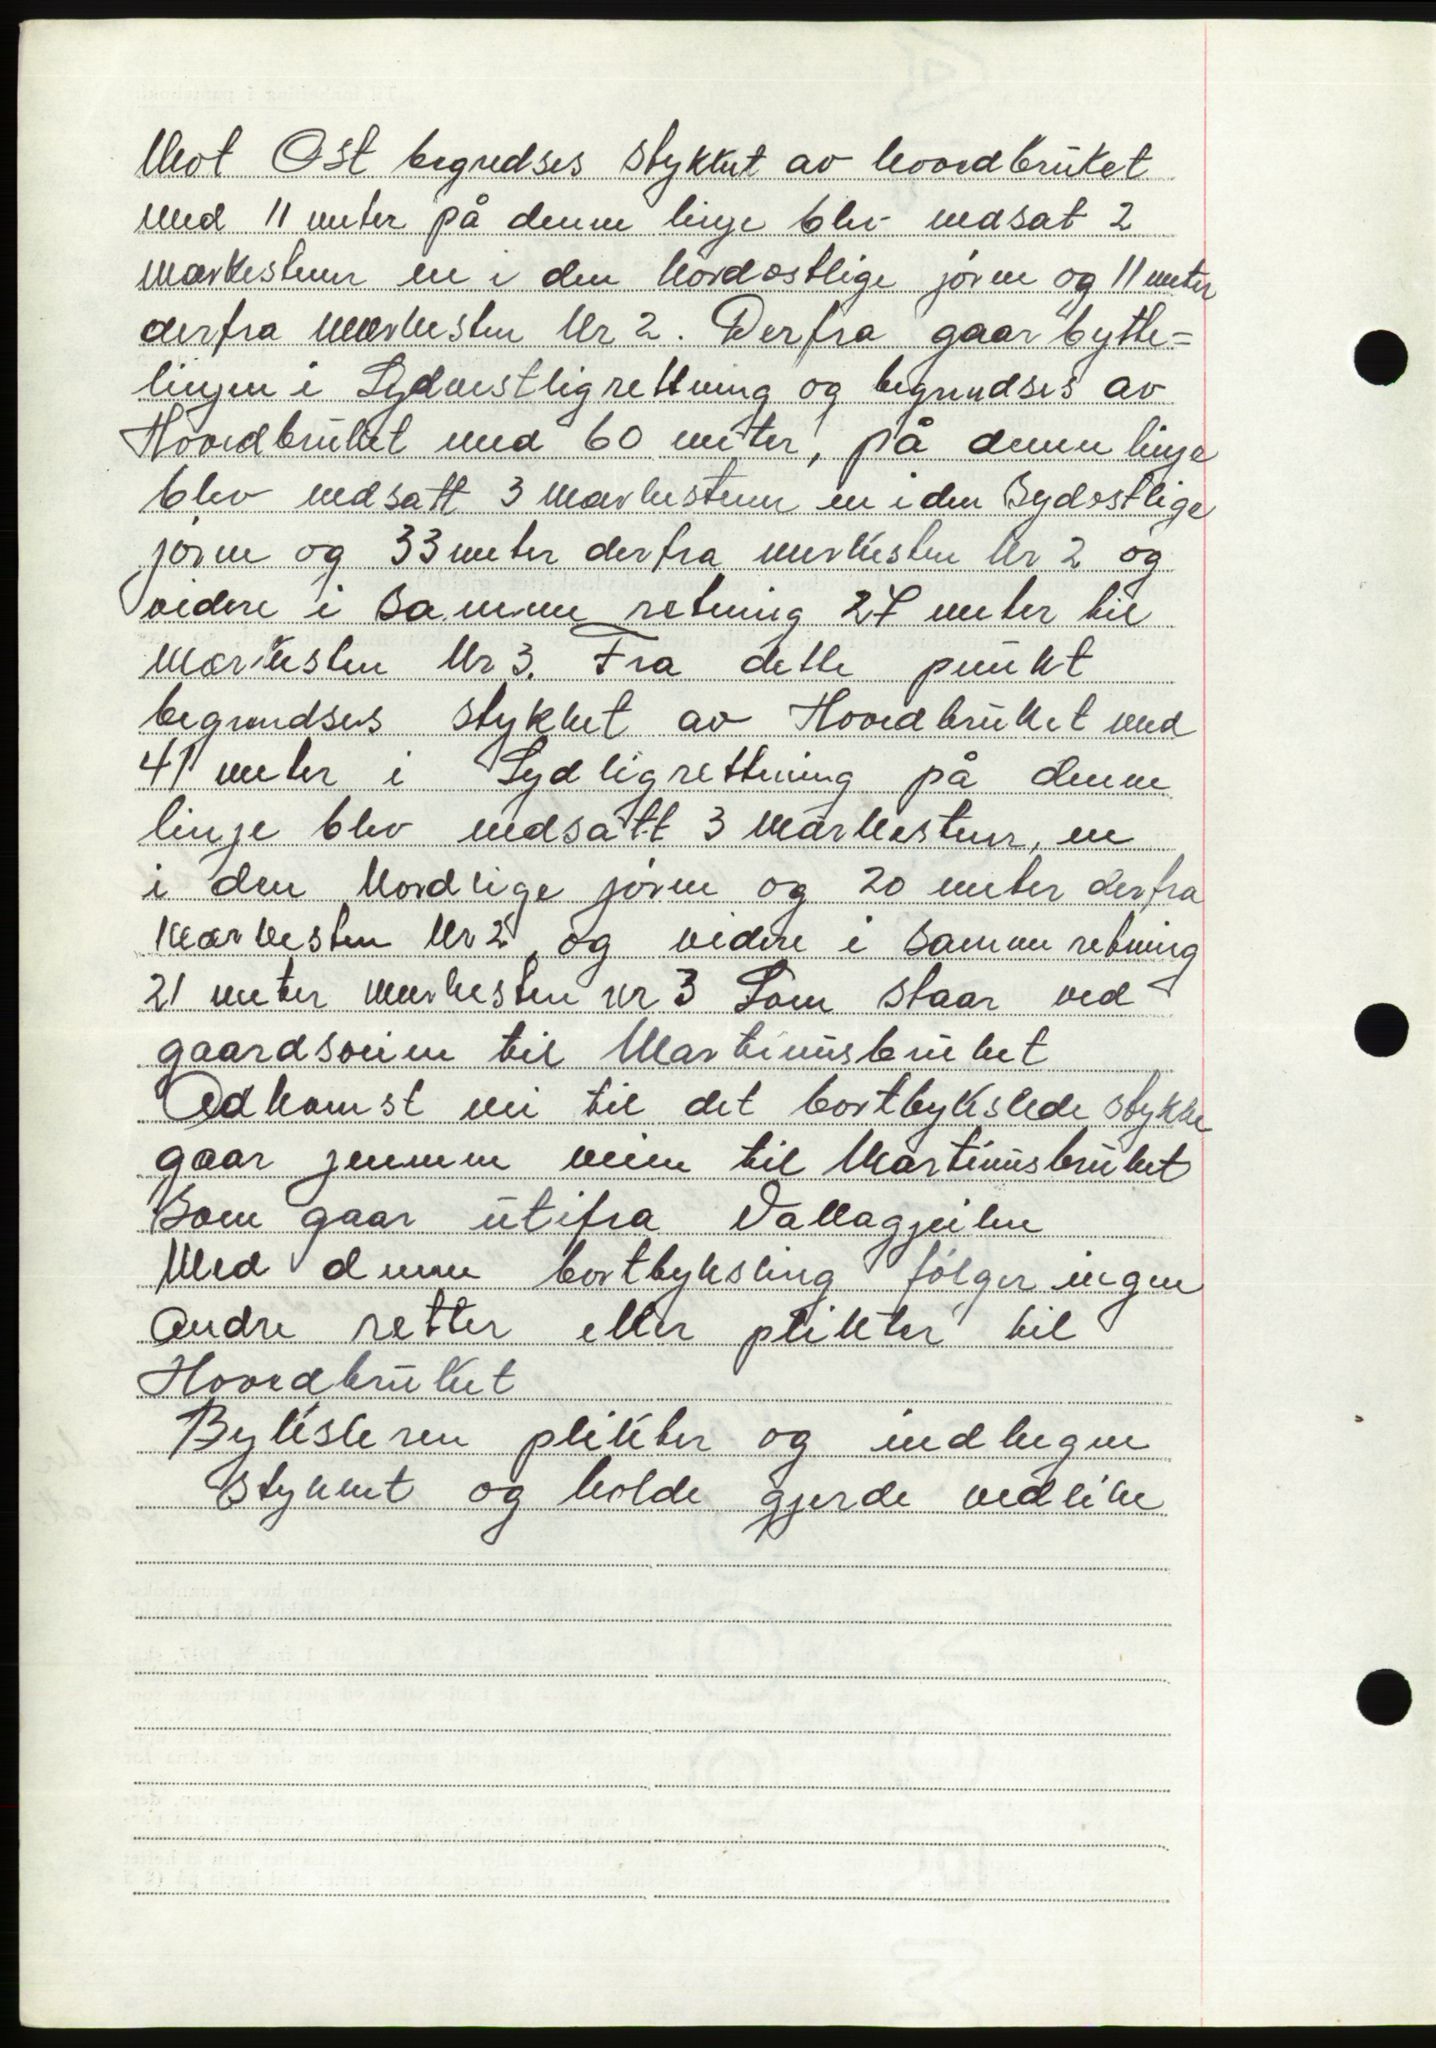 Mot Ost begredses stykket av hovedbruket
med 11 meter på denne linje blev nedsat 2
markestener en i den Nordostlige jørne og 11 meter
derfra merkesten Nr 2. Derfra gaar bytte=
linjen i Sydvestligrettning og begrendses av
Hovedbruket med 60 meter, på denne linje
blev nedsatt 3 markestener en i den Sydostlige
jørne og 33 meter derfra merkesten Nr 2 og
videre i samme retning 27 meter til
markesten Nr 3. Fra dette punkt
begrendses stykket av Hovedbruket med
41 meter i Sydligrettning på denne
linje blev nedsatt 3 markestener, en
i den Nordlige jørne og 20 meter derfra
markesten Nr 2, og videre i samme retning
21 meter merkesten nr 3 Som staar ved
gaardsveien til Martinusbruket
Adkomst vei til det bortbykslede stykke
gaar jennem veien til Martinusbruket
Som gaar utifra Vallagjeilen
Med denne bortbyksling følger ingen
andre retter eller plikter til
Hovedbruket
Byksleren plikter og indhegne
stykket og holde gjerde vedlike